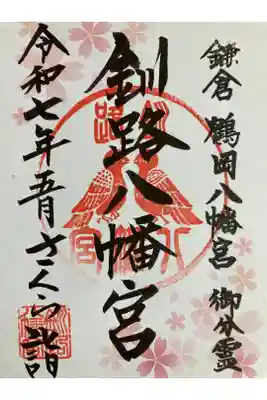 鎌倉 鶴岡八幡宮 御分霊
釧路八幡宮
令和七年五月 さくら詣